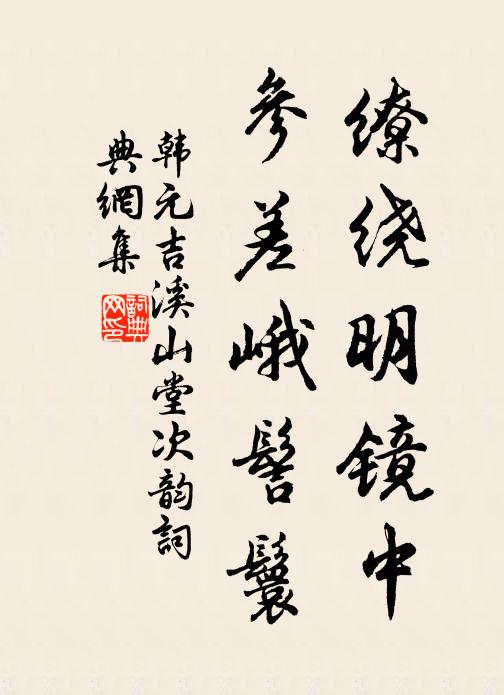 缭绕明镜中
参差峨髻鬟
韩元吉溪山堂次韵詞
典網集
詞典
网印